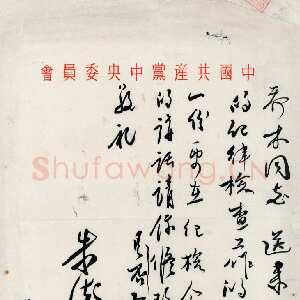 中國共産黨中央委員會
乔木同志 送来
的纪律检查工作的
一份要在纪检会
的讲话请你修改
是否
敬礼
朱德
Shufawang.CN